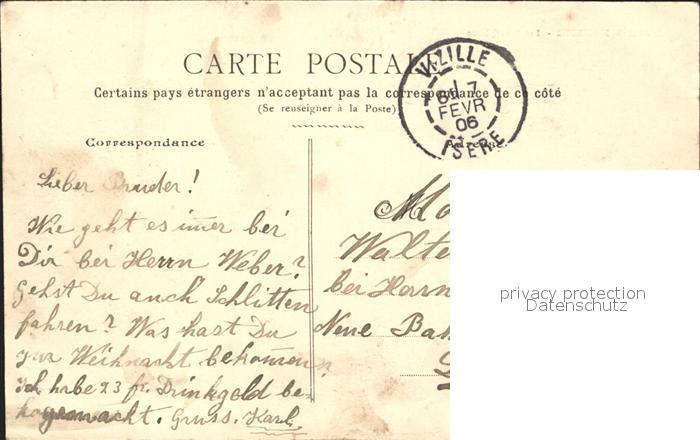 CARTE POSTALE
Certains pays étrangers n'acceptant pas la correspondance de ce côté
(Se renseigner à la Poste)
VIZILLE
17
FEVR
06
ISERE
Correspondance
Adresse
Lieber Bruder!
Wie geht es immer bei
Dir bei Herrn Weber?
Gehst Du auch Schlitten
fahren? Was hast Du
zur Weihnacht bekommen?
Ich habe 23 fr. Drinkgeld be-
gemacht. Gruss. Karl
Walte
bei Herrn
Neue Bah
privacy protection
Datenschutz